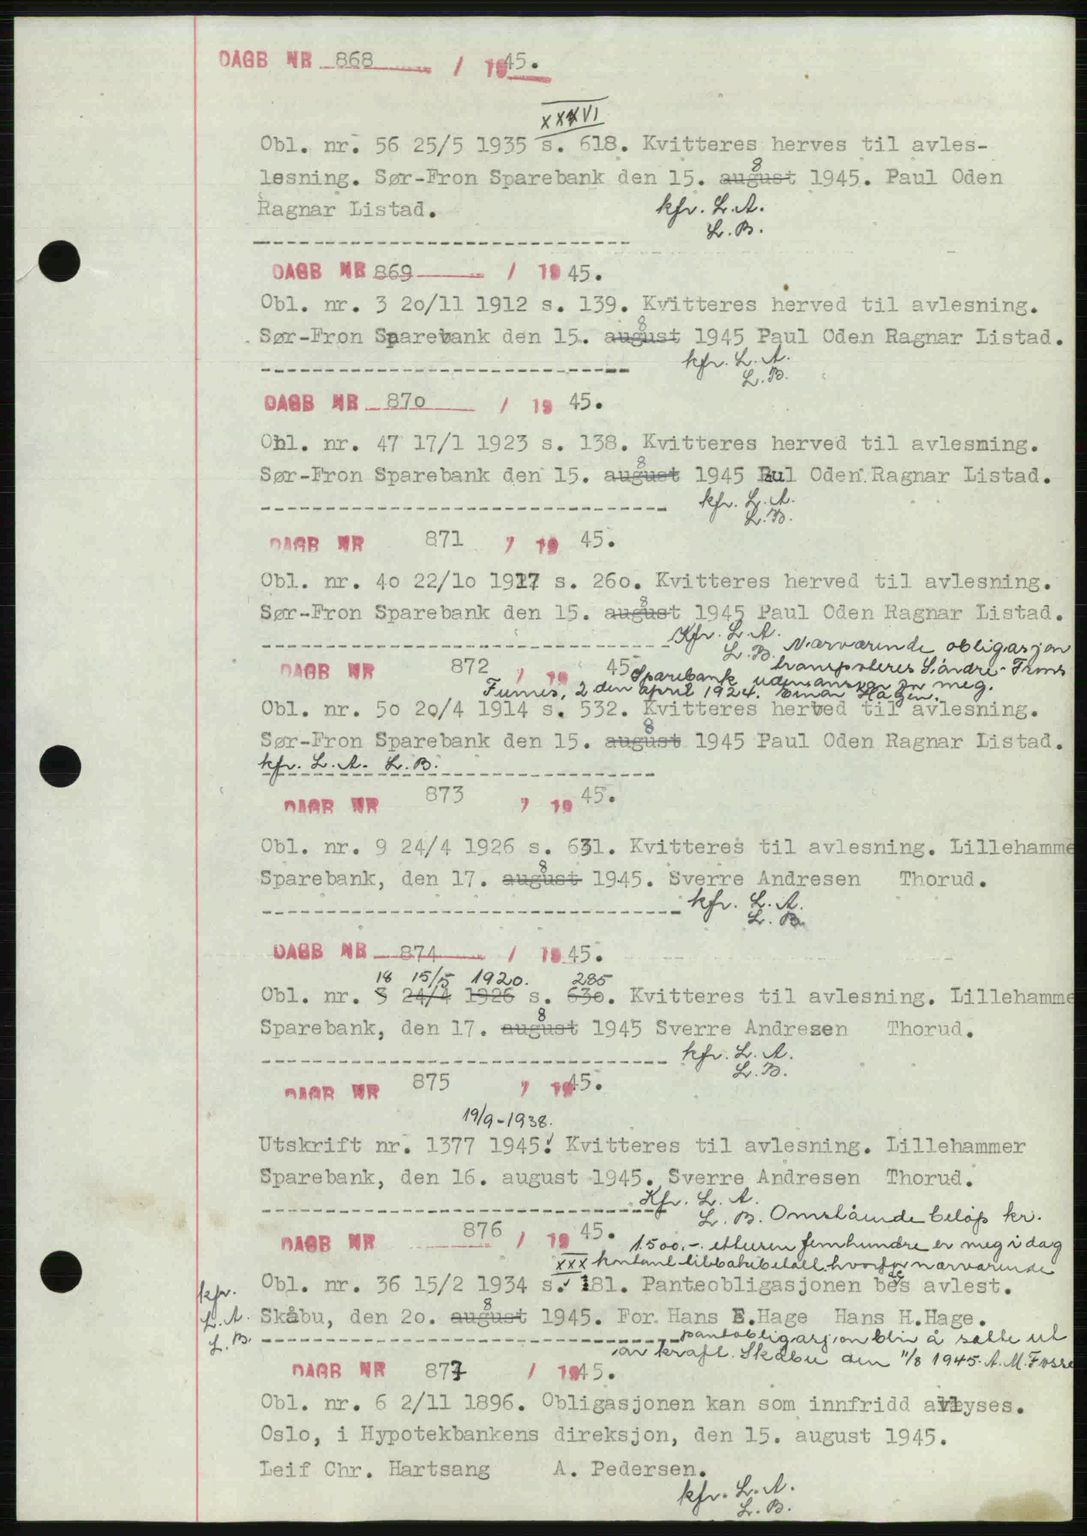 DAGB NR 868 / 1945.
XXXVI
Obl. nr. 56 25/5 1935 s. 618. Kvitteres herves til avles-
lesning. Sør-Fron Sparebank den 15. august 8 1945. Paul Oden
Ragnar Listad. kfr. L.A.
L.B.
DAGB NR 869 / 1945.
Obl. nr. 3 2o/11 1912 s. 139. Kvitteres herved til avlesning.
Sør-Fron Sparebank den 15. august 8 1945 Paul Oden Ragnar Listad.
kfr. L.A.
L.B.
DAGB NR 87o / 1945.
Obl. nr. 47 17/1 1923 s. 138. Kvitteres herved til avlesning.
Sør-Fron Sparebank den 15. august 8 1945 Paul Oden Ragnar Listad.
kfr. L.A.
L.B.
DAGB NR 871 / 1945.
Obl. nr. 4o 22/1o 1917 s. 26o. Kvitteres herved til avlesning.
Sør-Fron Sparebank den 15. august 8 1945 Paul Oden Ragnar Listad.
Kfr. L.A.
L.B. Nærværende obligasjon
DAGB NR 872 / 1945. transporteres Söndre-Frons
Sparebank uden ansvar for meg.
Furnes, 2 den april 1924. Einar Hagen.
Obl. nr. 5o 2o/4 1914 s. 532. Kvitteres herved til avlesning.
Sør-Fron Sparebank den 15. august 8 1945 Paul Oden Ragnar Listad.
kfr. L.A. L.B.
DAGB NR 873 / 1945.
Obl. nr. 9 24/4 1926 s. 631. Kvitteres til avlesning. Lillehamme
Sparebank, den 17. august 8 1945. Sverre Andresen Thorud.
kfr. L.A.
L.B.
DAGB NR 874 / 1945.
18 15/5 1920. 285
Obl. nr. 8 24/4 1926 s. 63o. Kvitteres til avlesning. Lillehamme
Sparebank, den 17. august 8 1945 Sverre Andresen Thorud.
kfr. L.A.
L.B.
DAGB NR 875 / 1945.
19/9-1938.
Utskrift nr. 1377 1945. Kvitteres til avlesning. Lillehammer
Sparebank, den 16. august 1945. Sverre Andresen Thorud.
Kfr. L.A.
L.B. Omstående beløp kr.
DAGB NR 876 / 1945. 1500.-. ettusen femhundre er meg i dag
xxx kontant tilbakebetalt hvorfor nærværende
Obl. nr. 36 15/2 1934 s. 181. Panteobligasjonen bes avlest.
kfr. L.A. L.B.
Skåbu, den 2o. august 8 1945. For Hans E.Hage Hans H.Hage.
pantobligasjon blir å sætte ut
av kraft. Skåbu den 11/8 1945. A.M. Fosse
DAGB NR 877 / 1945.
Obl. nr. 6 2/11 1896. Obligasjonen kan som innfridd avlyses.
Oslo, i Hypotekbankens direksjon, den 15. august 1945.
Leif Chr. Hartsang A. Pedersen.
kfr. L.A.
L.B.